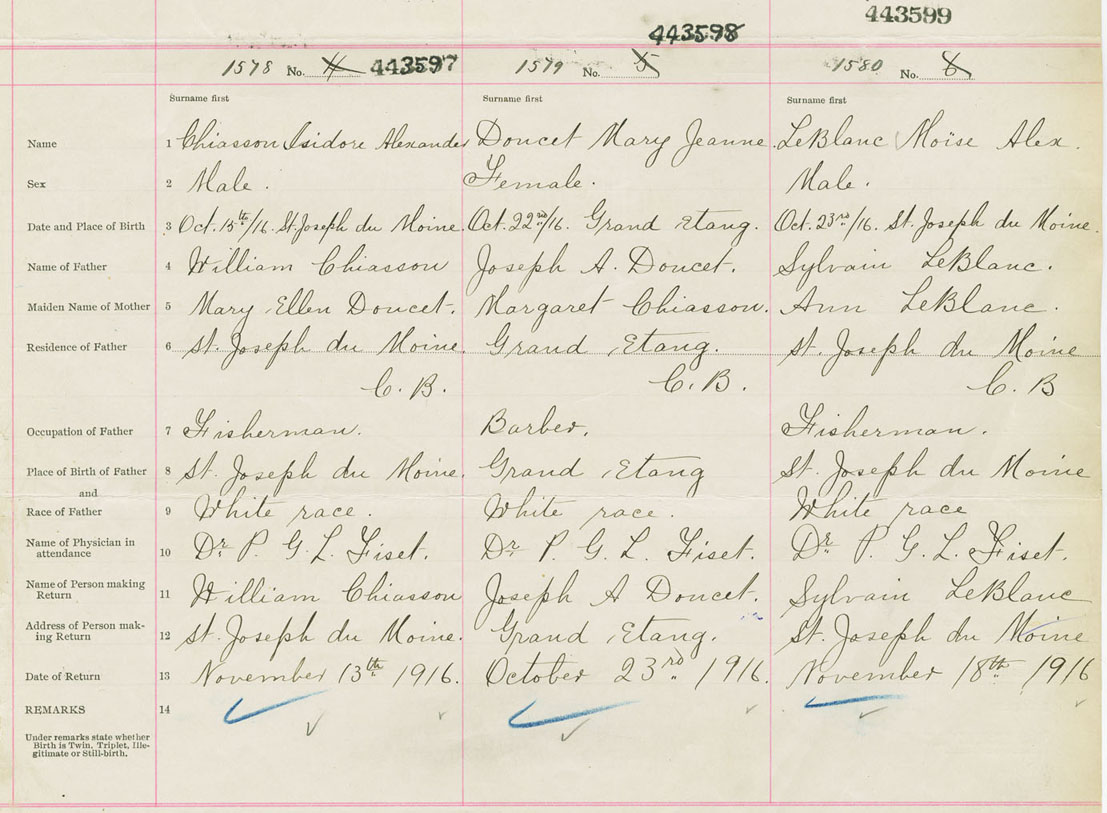 443599
443598
1578 No. 4 443597 1579 No. 5 1580 No. 6
Surname first Surname first Surname first
Name 1 Chiasson Isidore Alexander Doucet Mary Jeanne. LeBlanc Moïse Alex.
Sex 2 Male. Female. Male.
Date and Place of Birth 3 Oct. 15th/16. St. Joseph du Moine. Oct. 22nd/16. Grand Etang. Oct. 23rd/16. St. Joseph du Moine.
Name of Father 4 William Chiasson Joseph A. Doucet. Sylvain LeBlanc.
Maiden Name of Mother 5 Mary Ellen Doucet. Margaret Chiasson. Ann LeBlanc.
Residence of Father 6 St. Joseph du Moine. Grand Etang. St. Joseph du Moine
C. B. C. B. C. B
Occupation of Father 7 Fisherman. Barber. Fisherman.
Place of Birth of Father 8 St. Joseph du Moine. Grand Etang St. Joseph du Moine
and
Race of Father 9 White race. White race. White race
Name of Physician in
attendance 10 Dr. P. G. L. Fiset. Dr. P. G. L. Fiset. Dr. P. G. L. Fiset.
Name of Person making
Return 11 William Chiasson Joseph A Doucet. Sylvain LeBlanc
Address of Person mak-
ing Return 12 St. Joseph du Moine. Grand Etang. St. Joseph du Moine
Date of Return 13 November 13th 1916. October 23rd. 1916. November 18th 1916
REMARKS 14
Under remarks state whether
Birth is Twin, Triplet, Ille-
gitimate or Still-birth.